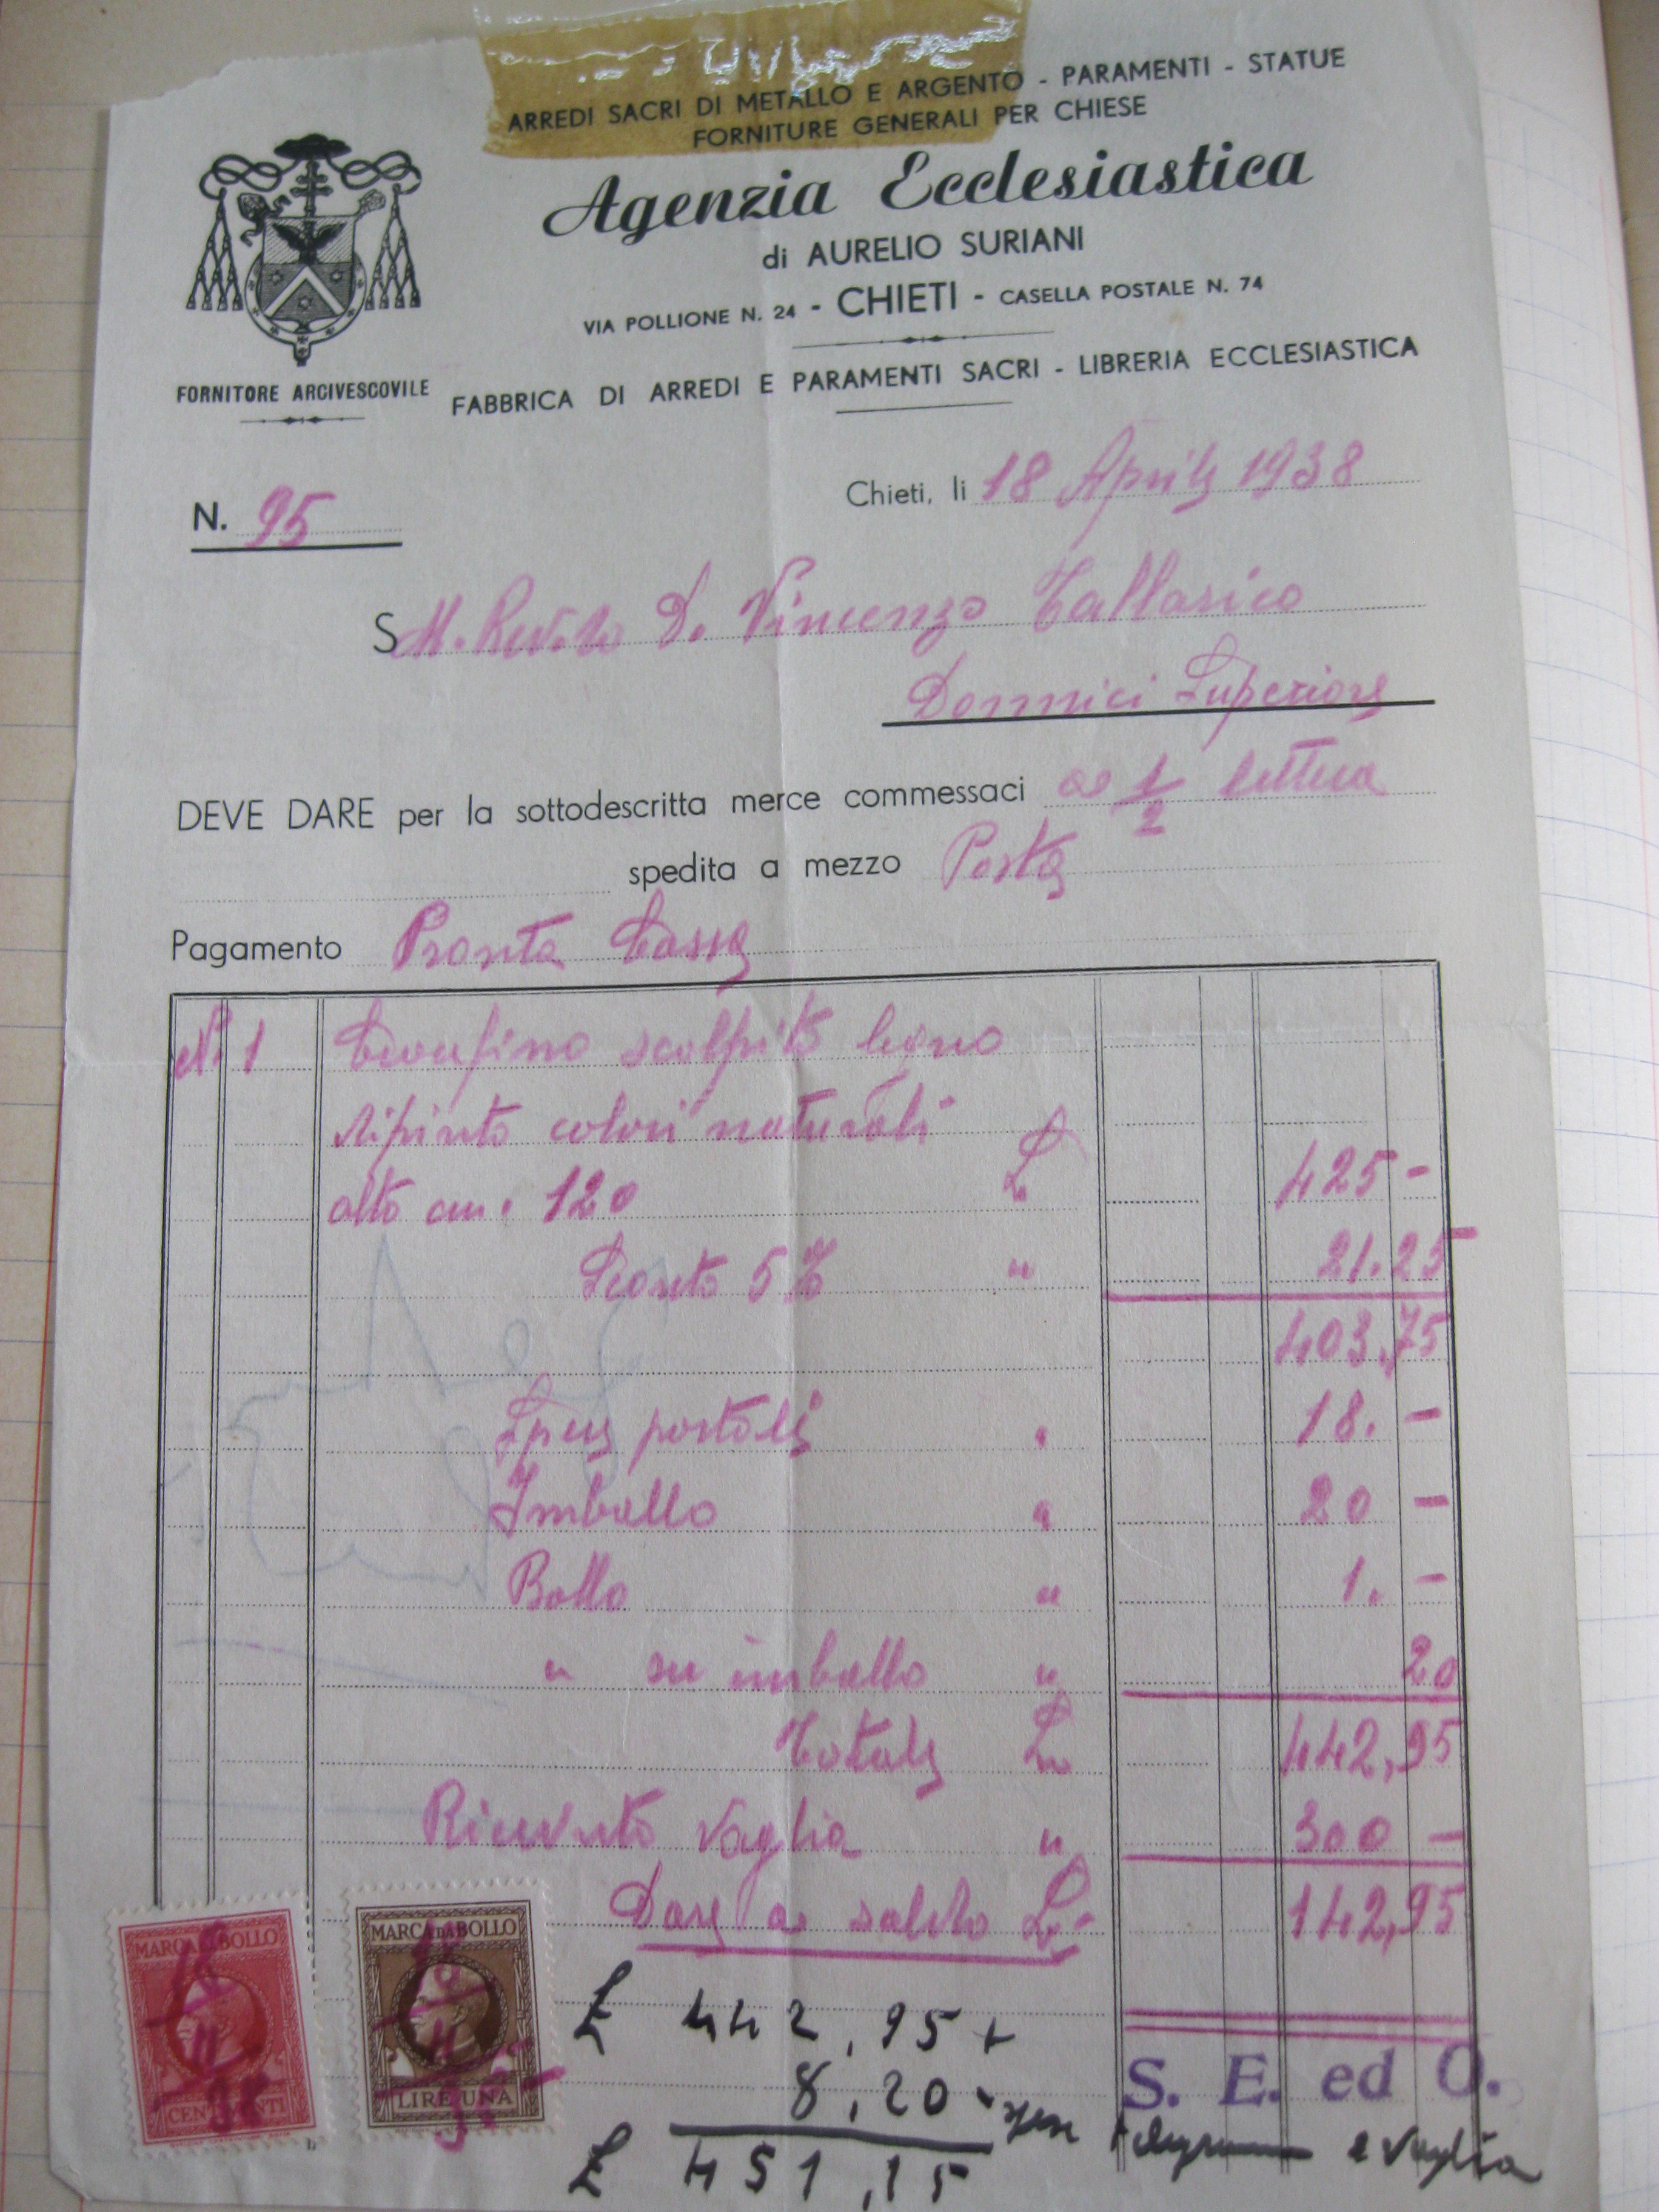 ARREDI SACRI DI METALLO E ARGENTO - PARAMENTI - STATUE
FORNITURE GENERALI PER CHIESE
Agenzia Ecclesiastica
di AURELIO SURIANI
VIA POLLIONE N. 24 - CHIETI - CASELLA POSTALE N. 74
FORNITORE ARCIVESCOVILE
FABBRICA DI ARREDI E PARAMENTI SACRI - LIBRERIA ECCLESIASTICA
Chieti, li 18 Aprile 1938
N. 95
S M. Rev.do D. Vincenzo Tallarico
Donnici Superiore
DEVE DARE per la sottodescritta merce commessaci a 1/2 lettera
spedita a mezzo Posta
Pagamento Pronta Cassa
N. 1 Crocefisso scolpito legno
dipinto colori naturali
alto cm. 120 L. 425 -
Sconto 5 % " 21.25
403,75
Spese postali " 18. -
Imballo " 20 -
Bollo " 1. -
" su imballo " 20
Totale L. 442,95
Ricevuto vaglia " 300 -
Dare a saldo L. 142,95
MARCA DA BOLLO
CENT. VENTI
18
4
38
MARCA DA BOLLO
LIRE UNA
18
4
£ 442,95 +
8,20 - spese telegramma e vaglia
£ 451,15
S. E. ed O.